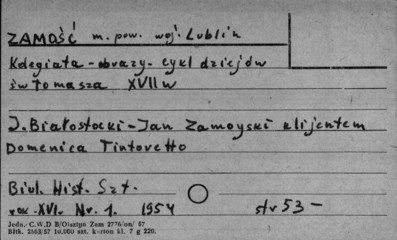 ZAMOŚĆ m. pow. woj. Lublin
Kolegiata - obrazy - cykl dziejów
św Tomasza XVII w
J. Białostocki - Jan Zamoyski klijentem
Domenica Tintoretto
Biul. Hist. Szt.
rok. XVI. Nr. 1. 1954 str 53 -
Jedn. C.W.D B/Olsztyn Zam 2776/on/ 67
Błtk. 2563/57 10.000 szt. karton kl. 7 g 220.